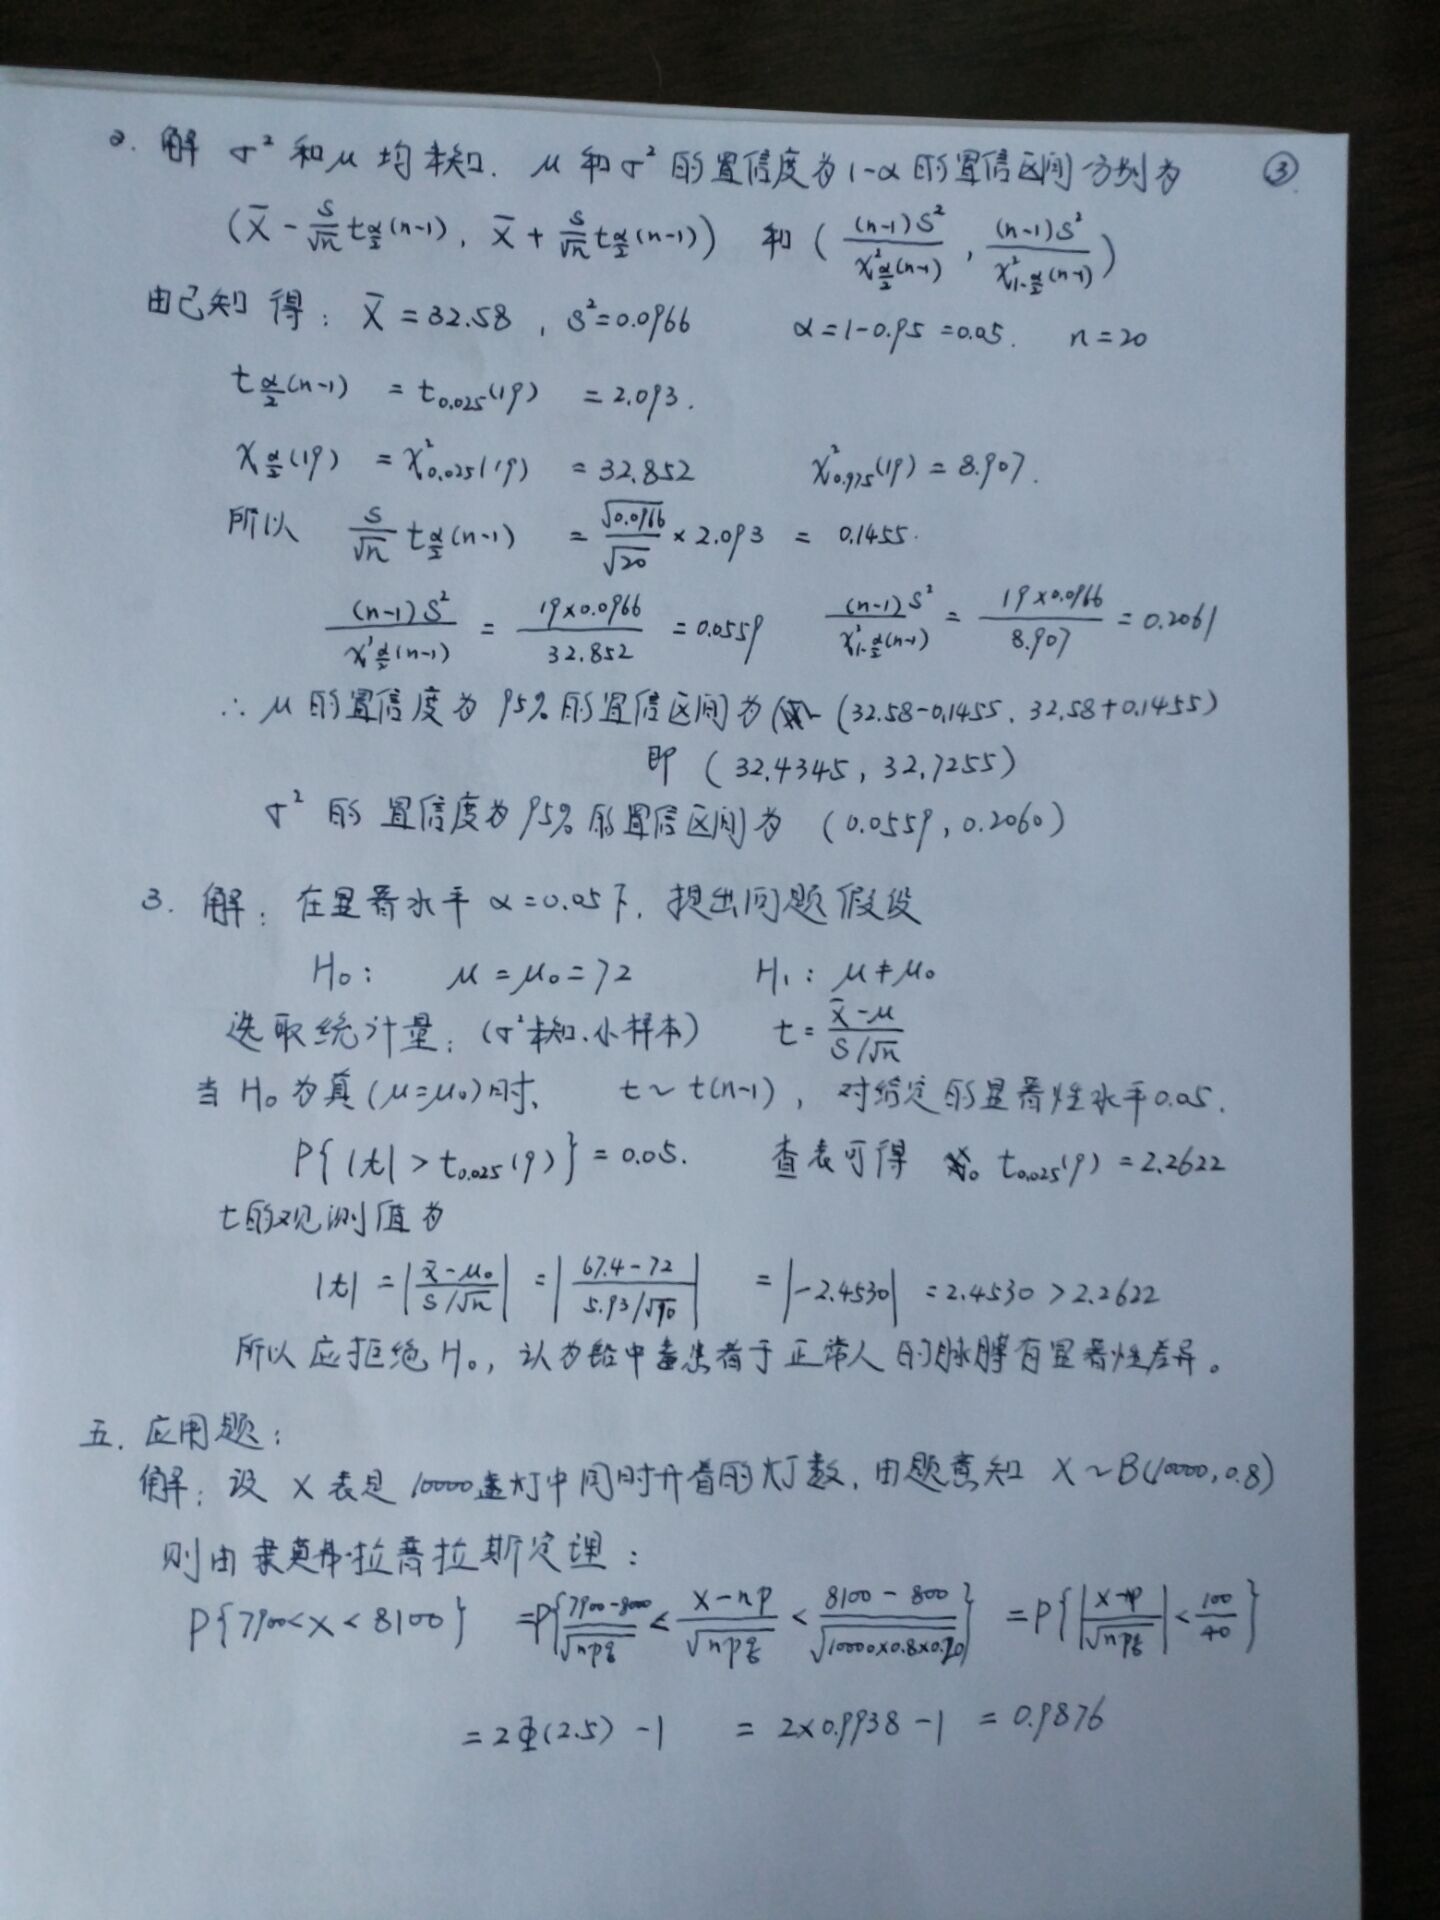 2. 解 σ² 和 μ 均未知. μ 和 σ² 的置信度为 1-α 的置信区间分别为 ③
(X̄ - S/√n t_{α/2}(n-1), X̄ + S/√n t_{α/2}(n-1)) 和 ( (n-1)S²/χ²_{α/2}(n-1), (n-1)S²/χ²_{1-α/2}(n-1) )
由已知得: X̄ = 32.58, S² = 0.0966 α = 1-0.95 = 0.05. n = 20
t_{α/2}(n-1) = t_{0.025}(19) = 2.093.
χ_{α/2}(19) = χ²_{0.025}(19) = 32.852 χ²_{0.975}(19) = 8.907.
所以 S/√n t_{α/2}(n-1) = √0.0966/√20 × 2.093 = 0.1455.
(n-1)S²/χ²_{α/2}(n-1) = 19×0.0966/32.852 = 0.0559 (n-1)S²/χ²_{1-α/2}(n-1) = 19×0.0966/8.907 = 0.2061
∴ μ 的置信度为 95% 的置信区间为 (32.58-0.1455, 32.58+0.1455)
即 (32.4345, 32.7255)
σ² 的置信度为 95% 的置信区间为 (0.0559, 0.2060)
3. 解: 在显著水平 α=0.05下, 提出问题假设
H₀: μ = μ₀ = 72 H₁: μ ≠ μ₀
选取统计量: (σ²未知.小样本) t = (X̄-μ)/(S/√n)
当 H₀ 为真 (μ=μ₀) 时、 t ~ t(n-1), 对给定的显著性水平 0.05.
P{|t| > t_{0.025}(9)} = 0.05. 查表可得 t_{0.025}(9) = 2.2622
t的观测值为
|t| = |(x̄-μ₀)/(S/√n)| = |(67.4-72)/(5.93/√10)| = |-2.4530| = 2.4530 > 2.2622
所以应拒绝 H₀, 认为铅中毒患者于正常人的脉膊有显著性差异。
五. 应用题:
解: 设 X 表是 10000盏灯中同时开着的灯数, 由题意知 X ~ B(10000, 0.8)
则由隶莫弗·拉普拉斯定理:
P{7900<X<8100} = P{(7900-8000)/√npq < (X-np)/√npq < (8100-800)/√(10000×0.8×0.20)} = P{|(X-np)/√npq| < 100/40}
= 2Φ(2.5) - 1 = 2×0.9938 - 1 = 0.9876